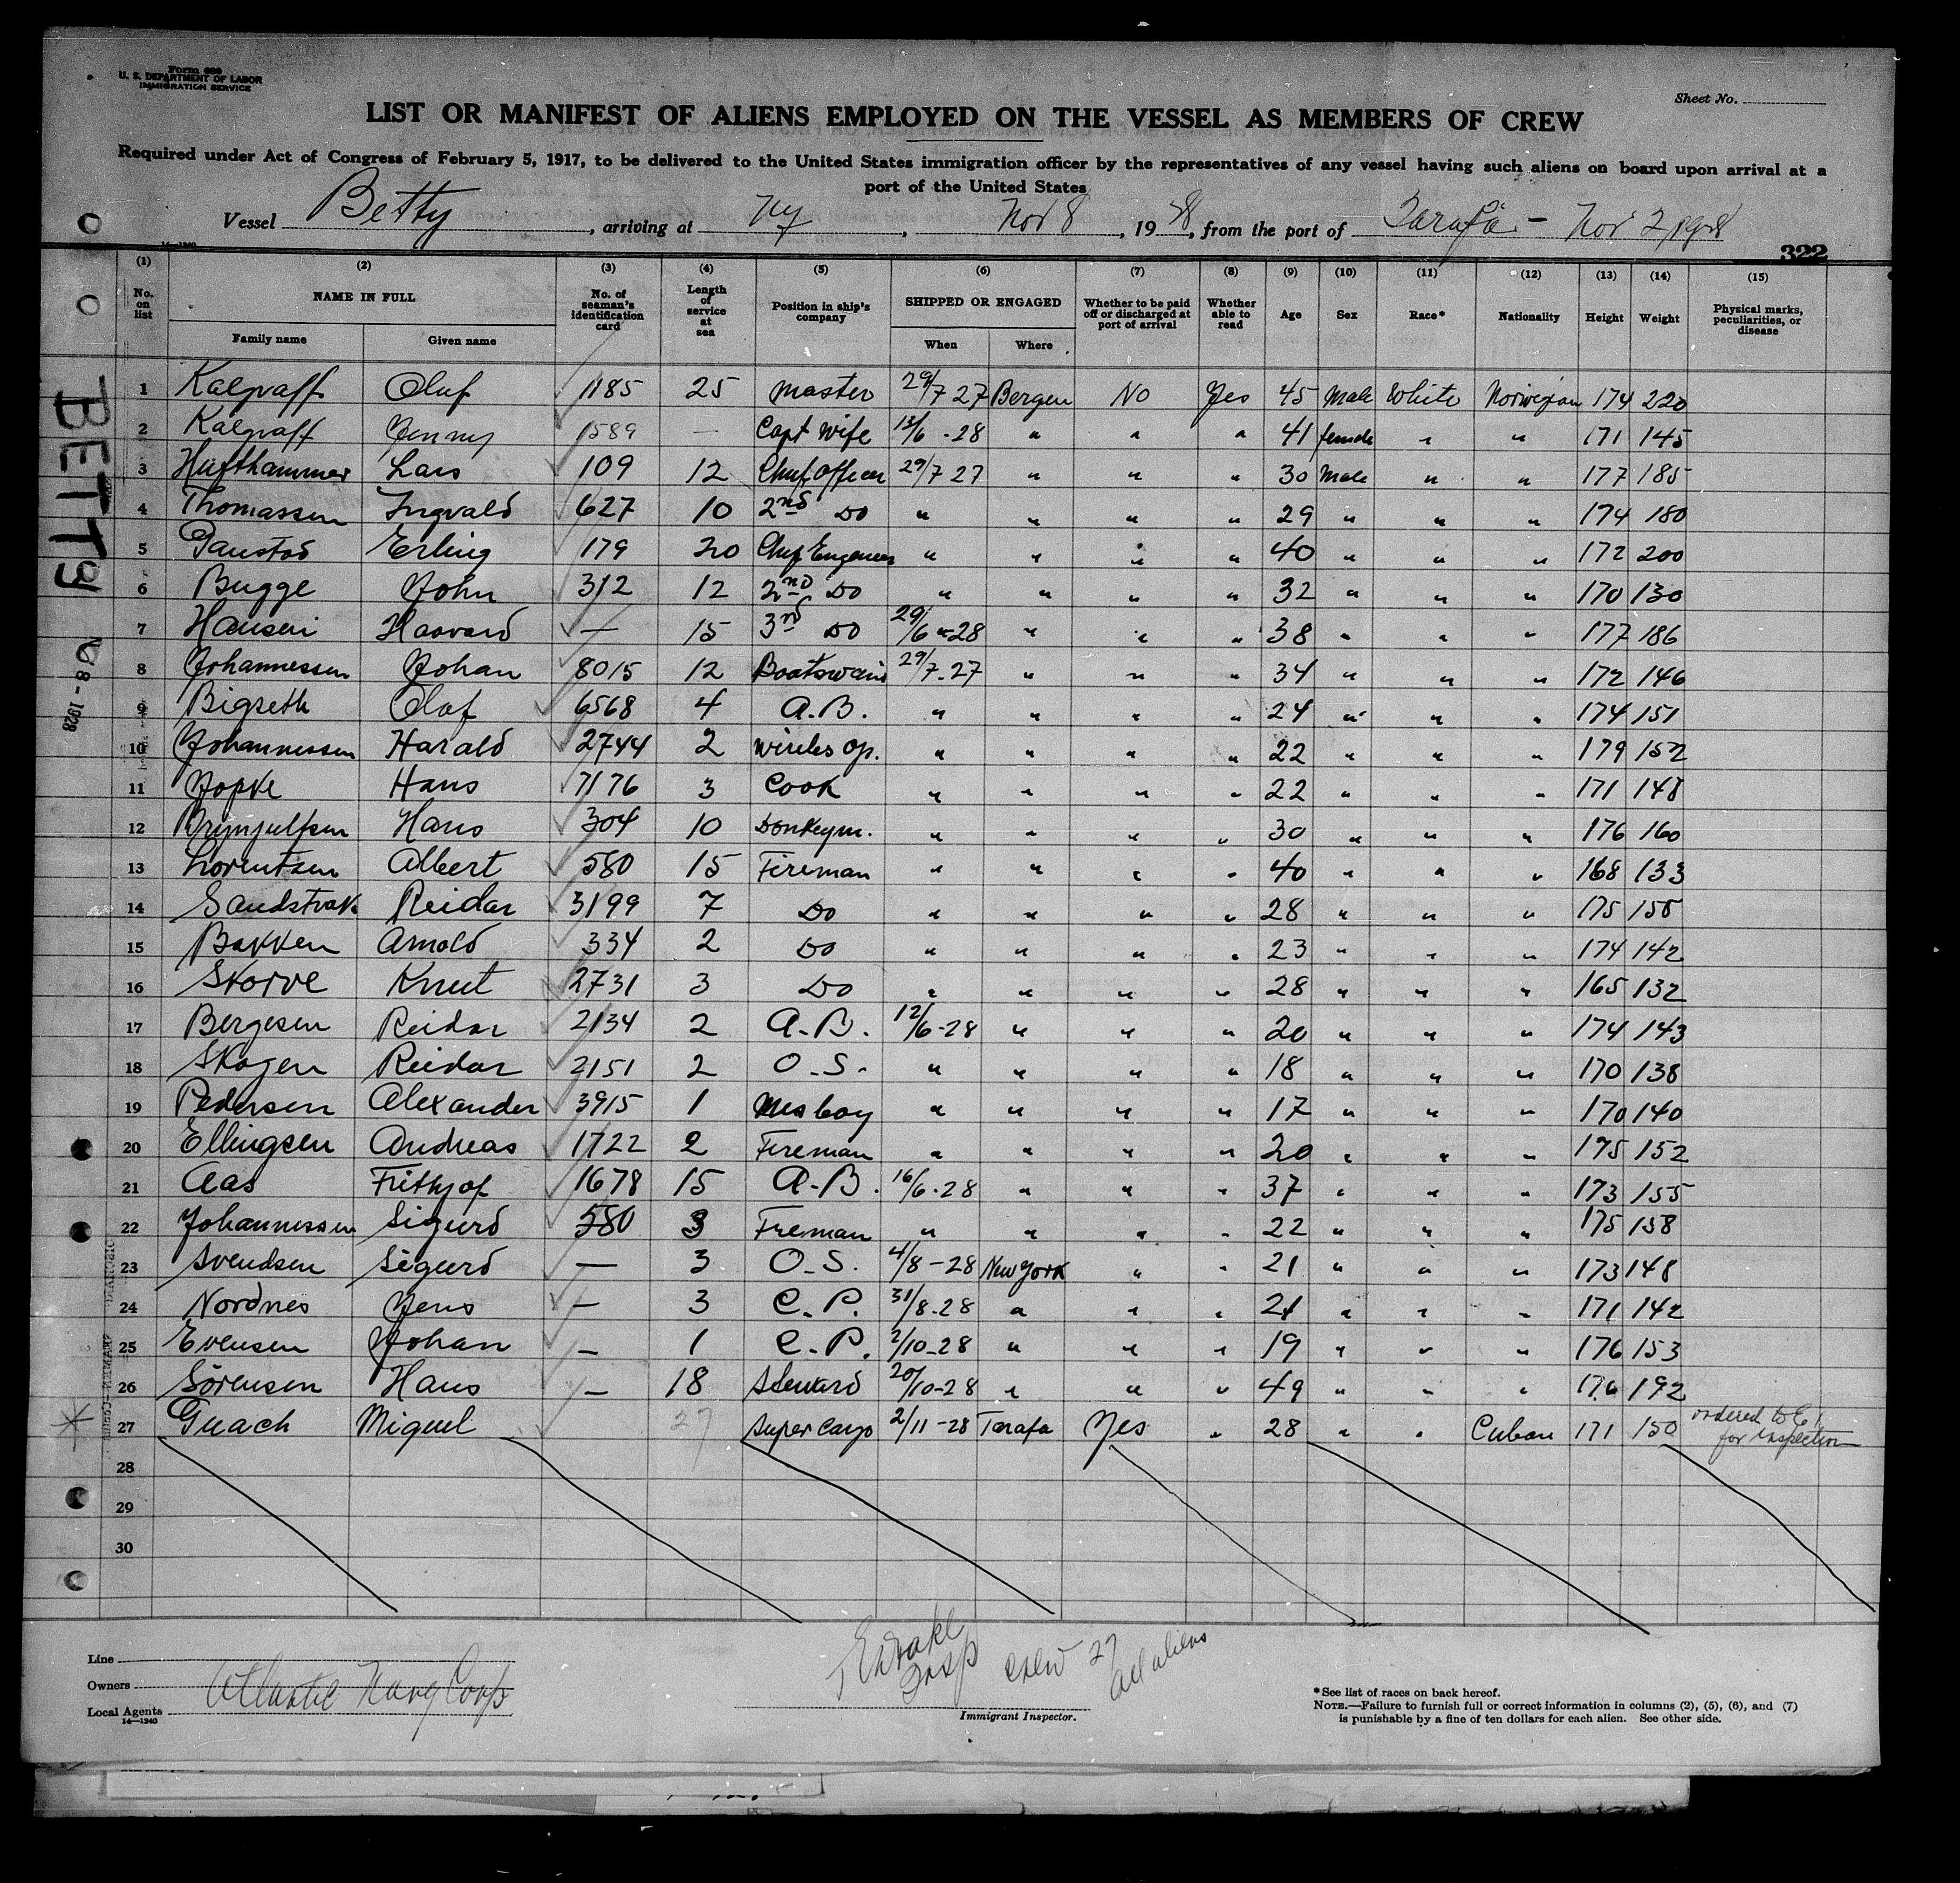 Form 680
U. S. DEPARTMENT OF LABOR
IMMIGRATION SERVICE
Sheet No.
LIST OR MANIFEST OF ALIENS EMPLOYED ON THE VESSEL AS MEMBERS OF CREW
Required under Act of Congress of February 5, 1917, to be delivered to the United States immigration officer by the representatives of any vessel having such aliens on board upon arrival at a
port of the United States
Vessel Betty, arriving at NY, Nov 8, 1928, from the port of Tarafa - Nov 2/1928
16—1240
322
(1) (2) (3) (4) (5) (6) (7) (8) (9) (10) (11) (12) (13) (14) (15)
No. on list NAME IN FULL No. of seaman's identification card Length of service at sea Position in ship's company SHIPPED OR ENGAGED Whether to be paid off or discharged at port of arrival Whether able to read Age Sex Race* Nationality Height Weight Physical marks, peculiarities, or disease
Family name Given name When Where
1 Kalgraff Olaf 1185 25 Master 29/7 27 Bergen No Yes 45 Male White Norwegian 174 220
2 Kalgraff Jenny 1589 — Capt Wife 13/6 -28 " " " 41 female " " 171 145
3 Hufthammer Lars 109 12 Chief Officer 29/7 27 " " " 30 Male " " 177 185
4 Thomassen Ingvald 627 10 2nd Do " " " " 29 " " " 174 180
5 Gaustad Erling 179 20 Chief Engeneer " " " " 40 " " " 172 200
6 Bugge John 312 12 2nd Do " " " " 32 " " " 170 130
7 Hansen Haavard — 15 3rd Do 29/6 -28 " " " 38 " " " 177 186
8 Johannessen Johan 8015 12 Boatswain 29/7-27 " " " 34 " " " 172 146
9 Bigseth Olaf 6568 4 A.B. " " " " 24 " " " 174 151
10 Johannessen Harald 2744 2 Wireles Op. " " " " 22 " " " 179 152
11 Jopke Hans 7176 3 Cook " " " " 22 " " " 171 148
12 Brynjulfsen Hans 304 10 Donkeym. " " " " 30 " " " 176 160
13 Lorentsen Albert 580 15 Fireman " " " " 40 " " " 168 133
14 Sandstrak Reidar 3199 7 Do " " " " 28 " " " 175 155
15 Bakken Arnold 334 2 Do " " " " 23 " " " 174 142
16 Skorve Knut 2731 3 Do " " " " 28 " " " 165 132
17 Bergesen Reidar 2134 2 A.B. 12/6-28 " " " 20 " " " 174 143
18 Skogen Reidar 2151 2 O.S. " " " " 18 " " " 170 138
19 Pedersen Alexander 3915 1 Mesboy " " " " 17 " " " 170 140
20 Ellingsen Andreas 1722 2 Fireman " " " " 20 " " " 175 152
21 Aas Frithjof 1678 15 A.B. 16/6-28 " " " 37 " " " 173 155
22 Johannessen Sigurd 580 3 Fireman " " " " 22 " " " 175 158
23 Svendsen Sigurd — 3 O.S. 4/8-28 New York " " 21 " " " 173 148
24 Nordnes Jens — 3 C.P. 31/8-28 " " " 21 " " " 171 142
25 Evensen Johan — 1 C.P. 2/10-28 " " " 19 " " " 176 153
26 Sörensen Hans — 18 Steward 20/10-28 " " " 49 " " " 176 192
27 Guach Miguel 27 Super Cargo 2/11-28 Tarafa Yes " 28 " " Cuban 171 150 ordered to E I for inspection
28
29
30
BETTY
8 - 1928
Line
Owners
Local Agents Atlantic Navg Corp
16—1240
Insp
Crew 27
all aliens
Immigrant Inspector.
*See list of races on back hereof.
NOTE.—Failure to furnish full or correct information in columns (2), (5), (6), and (7)
is punishable by a fine of ten dollars for each alien. See other side.